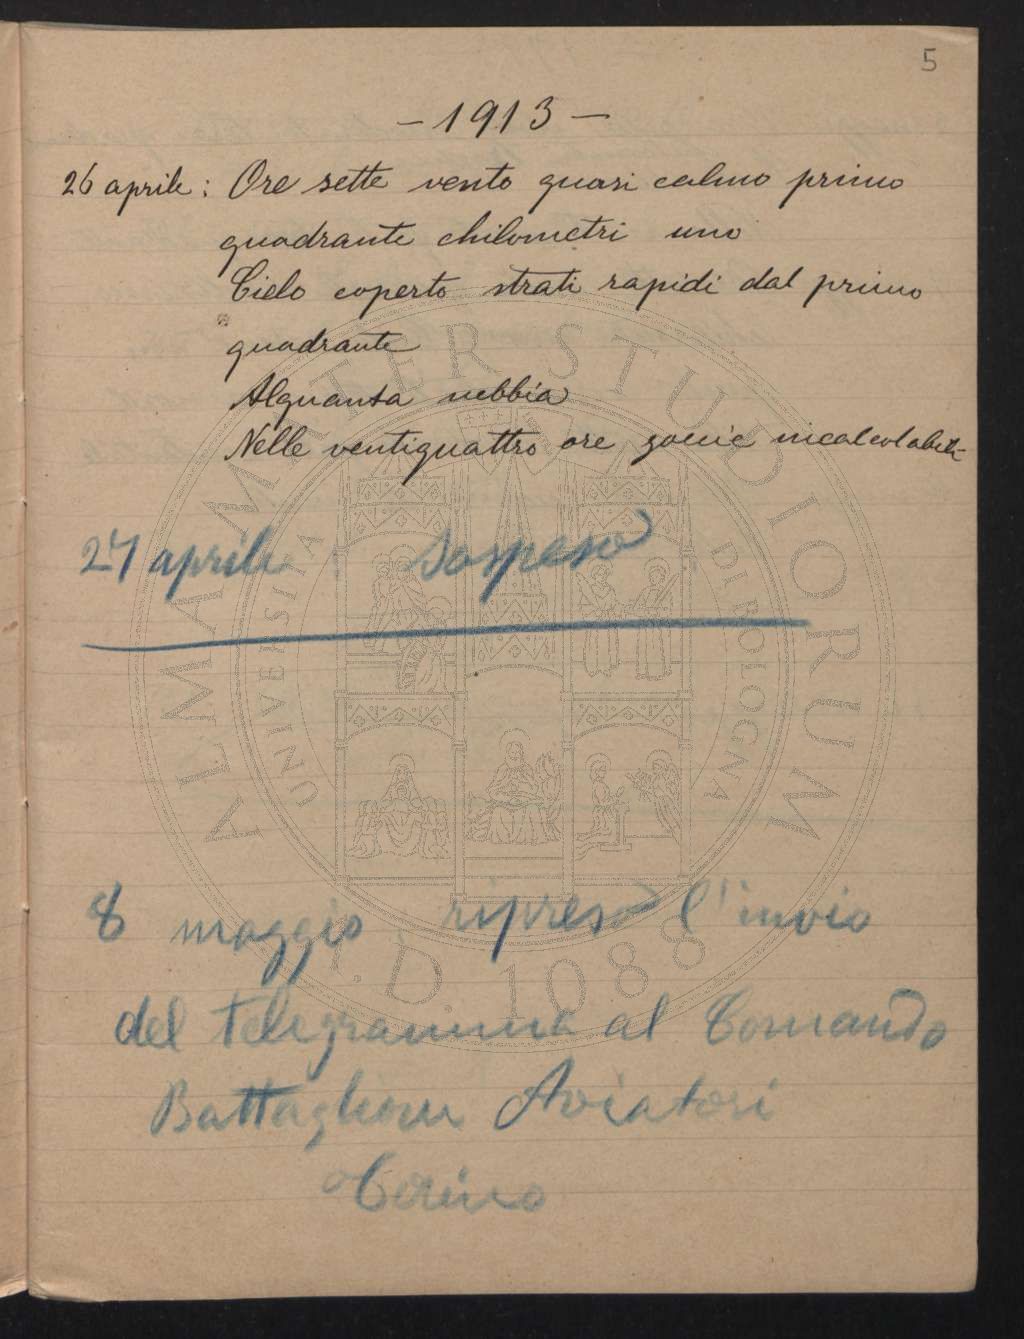 5
- 1913 -
26 aprile : Ore sette vento quasi calmo primo
quadrante chilometri uno
Cielo coperto strati rapidi dal primo
quadrante
Alquanta nebbia
Nelle ventiquattro ore goccie incalcolabili
27 aprile : Sospeso
8 maggio : ripreso l'invio
del telegramma al Comando
Battaglione Aviatori
Torino
ALMA MATER STUDIORUM
UNIVERSITA DI BOLOGNA
A.D. 1088